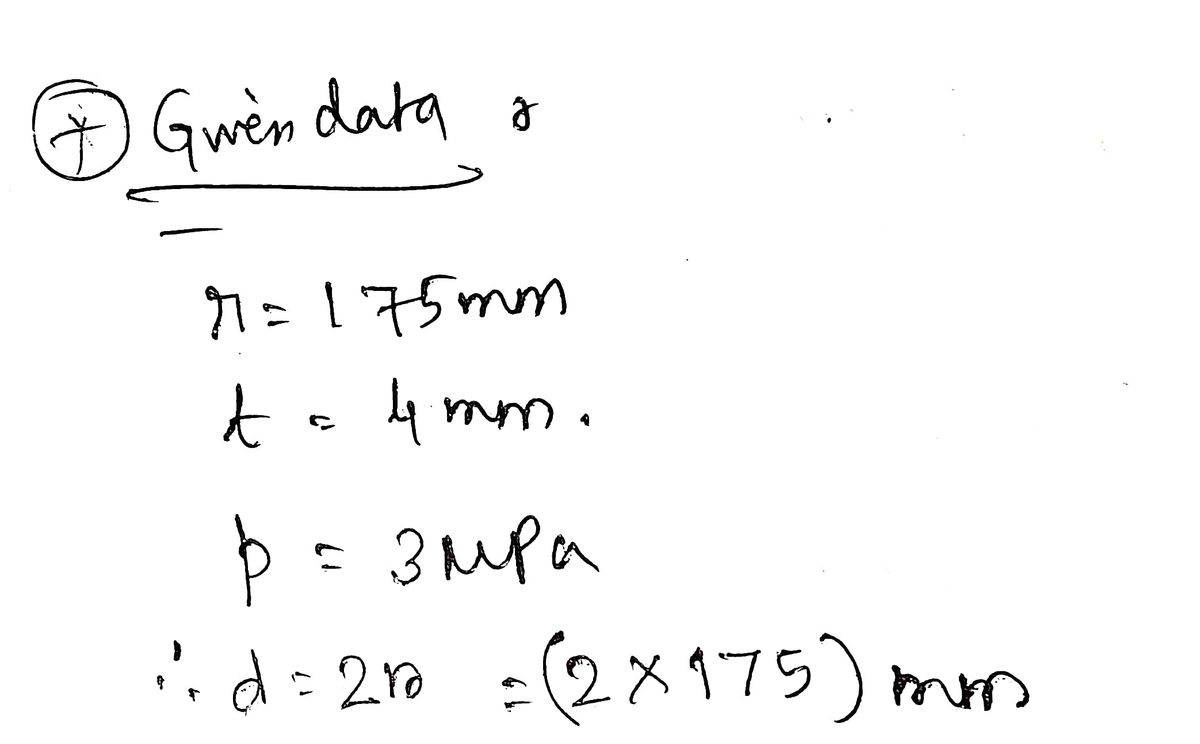 7 Given data :
r = 175mm
t = 4 mm.
p = 3 MPa
∴ d = 2r = (2 × 175) mm